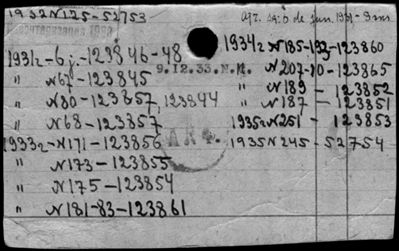 1932 N125-52753
1931г-6j.-123846-48
" N67-123845
" N80-123657, 123844
" N68-123857
1933г-N171-123856
" N173-123855
" N175-123854
" N181-83-123861
9.12.33.N.N.
1934г N185-193-123860
" N207-10-123865
" N189 - 123852
" N187 - 123851
1935г N251 - 123853
1935 N245-52754